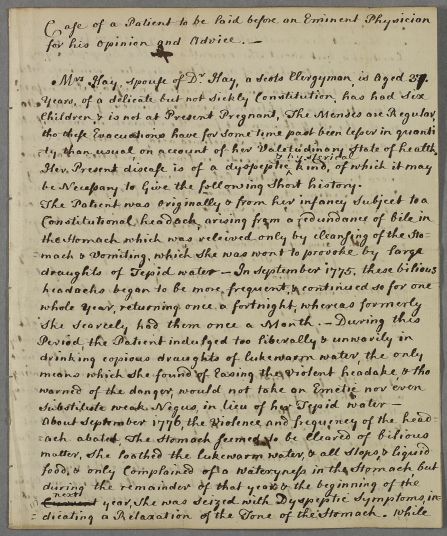 Case of a Patient to be laid before an Eminent Physician
for his Opinion and Advice. —
Mrs Hay, spouse of Dr Hay, a Scots Clergyman, is Aged 37
Years, of a delicate but not Sickly Constitution, has had Six
Children, & is not at Present Pregnant, The Menses are Regular
tho these Evacuations have for some time past bien lesser in quanti
-ty than usual, on account of her Valetudinary State of health.
Her Present disease is of a dyspeptic & hysterical kind, of which it may
be Necessary to Give the following Short history.
The Patient was Originally & from her infancy Subject to a
Constitutional headach, arising from a redundance of bile in
the Stomach which was releived only by cleansing of the Sto-
mach & Vomiting, which She was wont to provoke by large
draughts of Tepid water — In September 1775, these bilious
headachs began to be more frequent, & continued so for one
whole Year, returning once a fortnight, whereas formerly
She Scarcely had them once a Month. — During this
Period, the Patient indulged too liberally & unwarily in
drinking copious draughts of lukewarm water, the only
means which She found of Easing the Violent headake, & tho
warned of the danger, would not take an Emetic nor even
Substitute weak Negus, in lieu of her Tepid water —
About September 1776, the Violence and frequency of the head-
-ach abated. The Stomach seemed to be Cleared of bilious
matter, She loathed the lukewarm water, & all Slops & liquid
food, & only Complained of a wateryness in the Stomach but
during the remainder of that year & the beginning of the
next year, She was Seized with Dyspeptic Symptoms, in-
dicating a Relaxation of the Tone of the Stomach. While